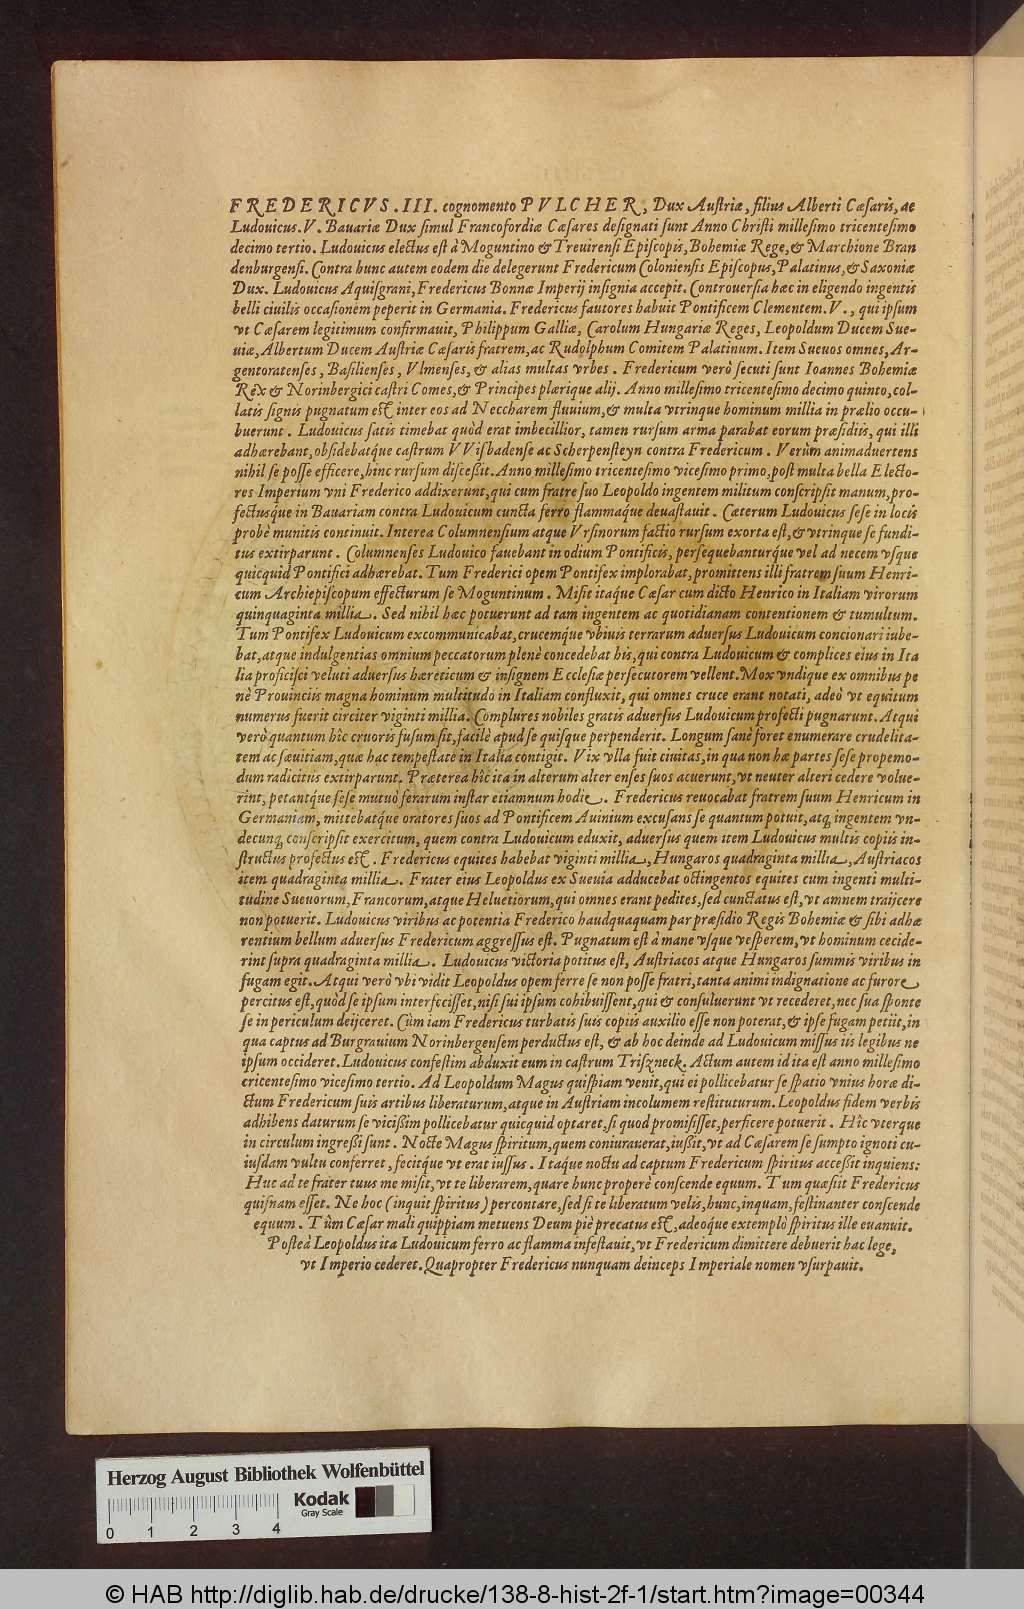 FREDERICVS.III. cognomento PVLCHER, Dux Austriæ, filius Alberti Cæsaris, ac
Ludouicus.V. Bauariæ Dux simul Francofordiæ Cæsares designati sunt Anno Christi millesimo tricentesimo
decimo tertio. Ludouicus electus est à Moguntino & Treuirensi Episcopis, Bohemiæ Rege, & Marchione Bran
denburgensi. Contra hunc autem eodem die delegerunt Fredericum Coloniensis Episcopus, Palatinus, & Saxoniæ
Dux. Ludouicus Aquisgrani, Fredericus Bonnæ Imperij insignia accepit. Controuersia hæc in eligendo ingentis
belli ciuilis occasionem peperit in Germania. Fredericus fautores habuit Pontificem Clementem.V., qui ipsum
vt Cæsarem legitimum confirmauit, Philippum Galliæ, Carolum Hungariæ Reges, Leopoldum Ducem Sue-
uiæ, Albertum Ducem Austriæ Cæsaris fratrem, ac Rudolphum Comitem Palatinum. Item Sueuos omnes, Ar-
gentoratenses, Basilienses, Vlmenses, & alias multas vrbes. Fredericum verò secuti sunt Ioannes Bohemiæ
Rex & Norinbergici castri Comes, & Principes plærique alij. Anno millesimo tricentesimo decimo quinto, col-
latis signis pugnatum est inter eos ad Neccharem fluuium, & multa vtrinque hominum millia in prælio occu-
buerunt. Ludouicus satis timebat quòd erat imbecillior, tamen rursum arma parabat eorum præsidijs, qui illi
adhærebant, obsidebatq́ue castrum VVisbadense ac Scherpensteyn contra Fredericum. Verùm animaduertens
nihil se posse efficere, hinc rursum discessit. Anno millesimo tricentesimo vicesimo primo, post multa bella Electo-
res Imperium vni Frederico addixerunt, qui cum fratre suo Leopoldo ingentem militum conscripsit manum, pro-
fectusque in Bauariam contra Ludouicum cuncta ferro flammaque deuastauit. Cæterum Ludouicus sese in locis
probè munitis continuit. Interea Columnensium atque Vrsinorum factio rursum exorta est, & vtrinque se fundi-
tus extirparunt. Columnenses Ludouico fauebant in odium Pontificis, persequebanturq́ue vel ad necem vsque
quicquid Pontifici adhærebat. Tum Frederici opem Pontifex implorabat, promittens illi fratrem suum Henri-
cum Archiepiscopum effecturum se Moguntinum. Misit itaque Cæsar cum dicto Henrico in Italiam virorum
quinquaginta millia. Sed nihil hæc potuerunt ad tam ingentem ac quotidianam contentionem & tumultum.
Tum Pontifex Ludouicum excommunicabat, crucemq́ue vbiuis terrarum aduersus Ludouicum concionari iube-
bat, atque indulgentias omnium peccatorum plenè concedebat his, qui contra Ludouicum & complices eius in Ita
lia proficisci veluti aduersus hæreticum & insignem Ecclesiæ persecutorem vellent. Mox vndique ex omnibus pe
nè Prouincijs magna hominum multitudo in Italiam confluxit, qui omnes cruce erant notati, adeò vt equitum
numerus fuerit circiter viginti millia. Complures nobiles gratis aduersus Ludouicum profecti pugnarunt. Atqui
verò quantum hîc cruoris fusum sit, facilè apud se quisque perpenderit. Longum sanè foret enumerare crudelita-
tem ac sæuitiam, quæ hac tempestate in Italia contigit. Vix vlla fuit ciuitas, in qua non hæ partes sese propemo-
dum radicitùs extirparunt. Præterea hîc ita in alterum alter enses suos acuerunt, vt neuter alteri cedere volue-
rint, petantq́ue sese mutuò ferarum instar etiamnum hodie. Fredericus reuocabat fratrem suum Henricum in
Germaniam, mittebatq́ue oratores suos ad Pontificem Auinium excusans se quantum potuit, atq; ingentem vn-
decunq; conscripsit exercitum, quem contra Ludouicum eduxit, aduersus quem item Ludouicus multis copijs in-
structus profectus est. Fredericus equites habebat viginti millia, Hungaros quadraginta millia, Austriacos
item quadraginta millia. Frater eius Leopoldus ex Sueuia adducebat octingentos equites cum ingenti multi-
tudine Sueuorum, Francorum, atque Heluetiorum, qui omnes erant pedites, sed cunctatus est, vt amnem traijcere
non potuerit. Ludouicus viribus ac potentia Frederico haudquaquam par præsidio Regis Bohemiæ & sibi adhæ
rentium bellum aduersus Fredericum aggressus est. Pugnatum est à mane vsque vesperem, vt hominum cecide-
rint supra quadraginta millia. Ludouicus victoria potitus est, Austriacos atque Hungaros summis viribus in
fugam egit. Atqui verò vbi vidit Leopoldus opem ferre se non posse fratri, tanta animi indignatione ac furore
percitus est, quòd se ipsum interfecisset, nisi sui ipsum cohibuissent, qui & consuluerunt vt recederet, nec sua sponte
se in periculum deijceret. Cùm iam Fredericus turbatis suis copijs auxilio esse non poterat, & ipse fugam petijt, in
qua captus ad Burgrauium Norinbergensem perductus est, & ab hoc deinde ad Ludouicum missus ijs legibus ne
ipsum occideret. Ludouicus confestim abduxit eum in castrum Triszneck. Actum autem id ita est anno millesimo
tricentesimo vicesimo tertio. Ad Leopoldum Magus quispiam venit, qui ei pollicebatur se spatio vnius horæ di-
ctum Fredericum suis artibus liberaturum, atque in Austriam incolumem restituturum. Leopoldus fidem verbis
adhibens daturum se vicissim pollicebatur quicquid optaret, si quod promisisset, perficere potuerit. Hîc vterque
in circulum ingressi sunt. Nocte Magus spiritum, quem coniurauerat, iussit, vt ad Cæsarem se sumpto ignoti cu-
iusdam vultu conferret, fecitq́ue vt erat iussus. Itaq́ue noctu ad captum Fredericum spiritus accessit inquiens:
Huc ad te frater tuus me misit, vt te liberarem, quare hunc properè conscende equum. Tum quæsijt Fredericus
quisnam esset. Ne hoc (inquit spiritus) percontare, sed si te liberatum velis, hunc, inquam, festinanter conscende
equum. Tùm Cæsar mali quippiam metuens Deum piè precatus est, adeoque extemplò spiritus ille euanuit.
Posteà Leopoldus ita Ludouicum ferro ac flamma infestauit, vt Fredericum dimittere debuerit hac lege,
vt Imperio cederet. Quapropter Fredericus nunquam deinceps Imperiale nomen vsurpauit.
Herzog August Bibliothek Wolfenbüttel
Kodak
Gray Scale
0 1 2 3 4
© HAB http://diglib.hab.de/drucke/138-8-hist-2f-1/start.htm?image=00344